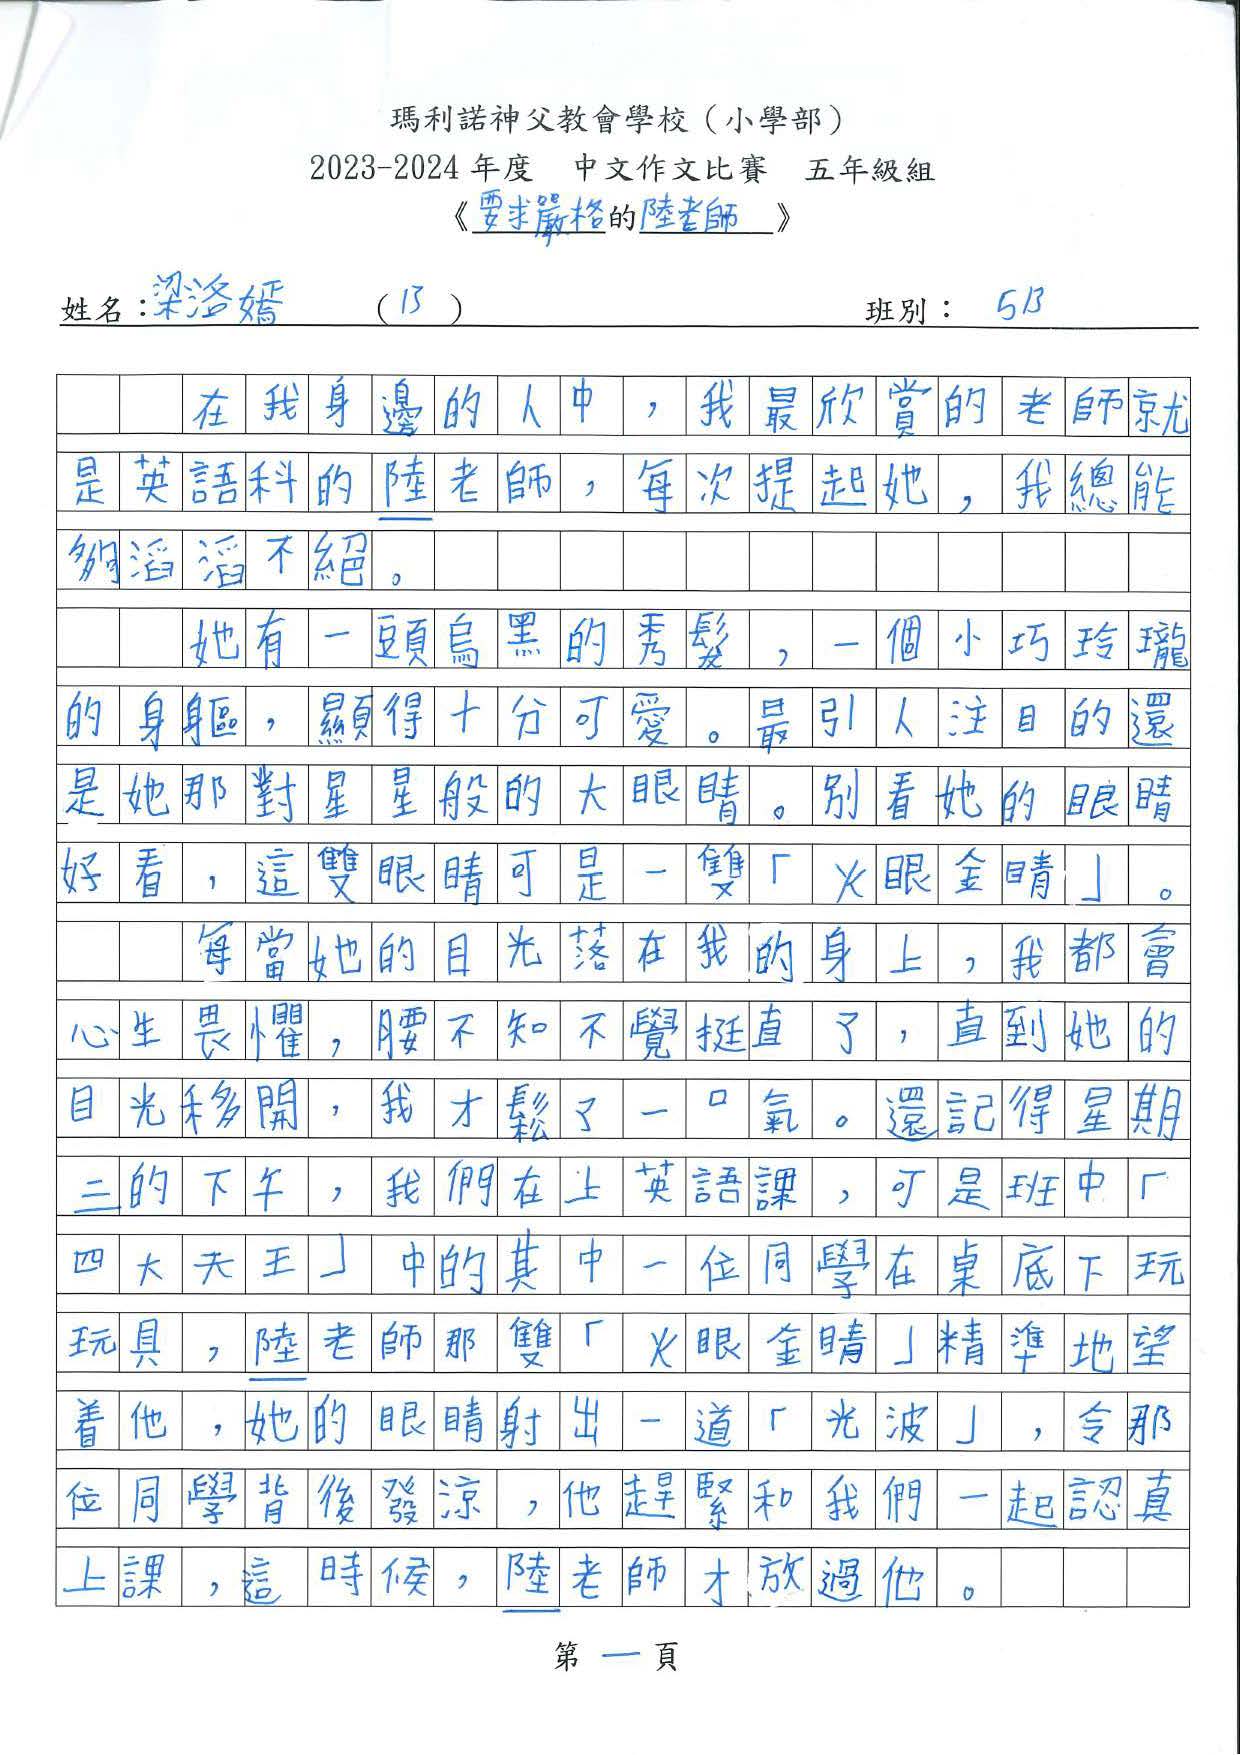 瑪利諾神父教會學校（小學部）
2023-2024 年度　中文作文比賽　五年級組
《要求嚴格的陸老師》
姓名：梁洛嫣　（13）　班別：5B
在我身邊的人中，我最欣賞的老師就
是英語科的陸老師，每次提起她，我總能
夠滔滔不絕。
她有一頭烏黑的秀髮，一個小巧玲瓏
的身軀，顯得十分可愛。最引人注目的還
是她那對星星般的大眼睛。別看她的眼睛
好看，這雙眼睛可是一雙「火眼金睛」。
每當她的目光落在我的身上，我都會
心生畏懼，腰不知不覺挺直了，直到她的
目光移開，我才鬆了一口氣。還記得星期
三的下午，我們在上英語課，可是班中「
四大天王」中的其中一位同學在桌底下玩
玩具，陸老師那雙「火眼金睛」精準地望
着他，她的眼睛射出一道「光波」，令那
位同學背後發涼，他趕緊和我們一起認真
上課，這時候，陸老師才放過他。
第一頁